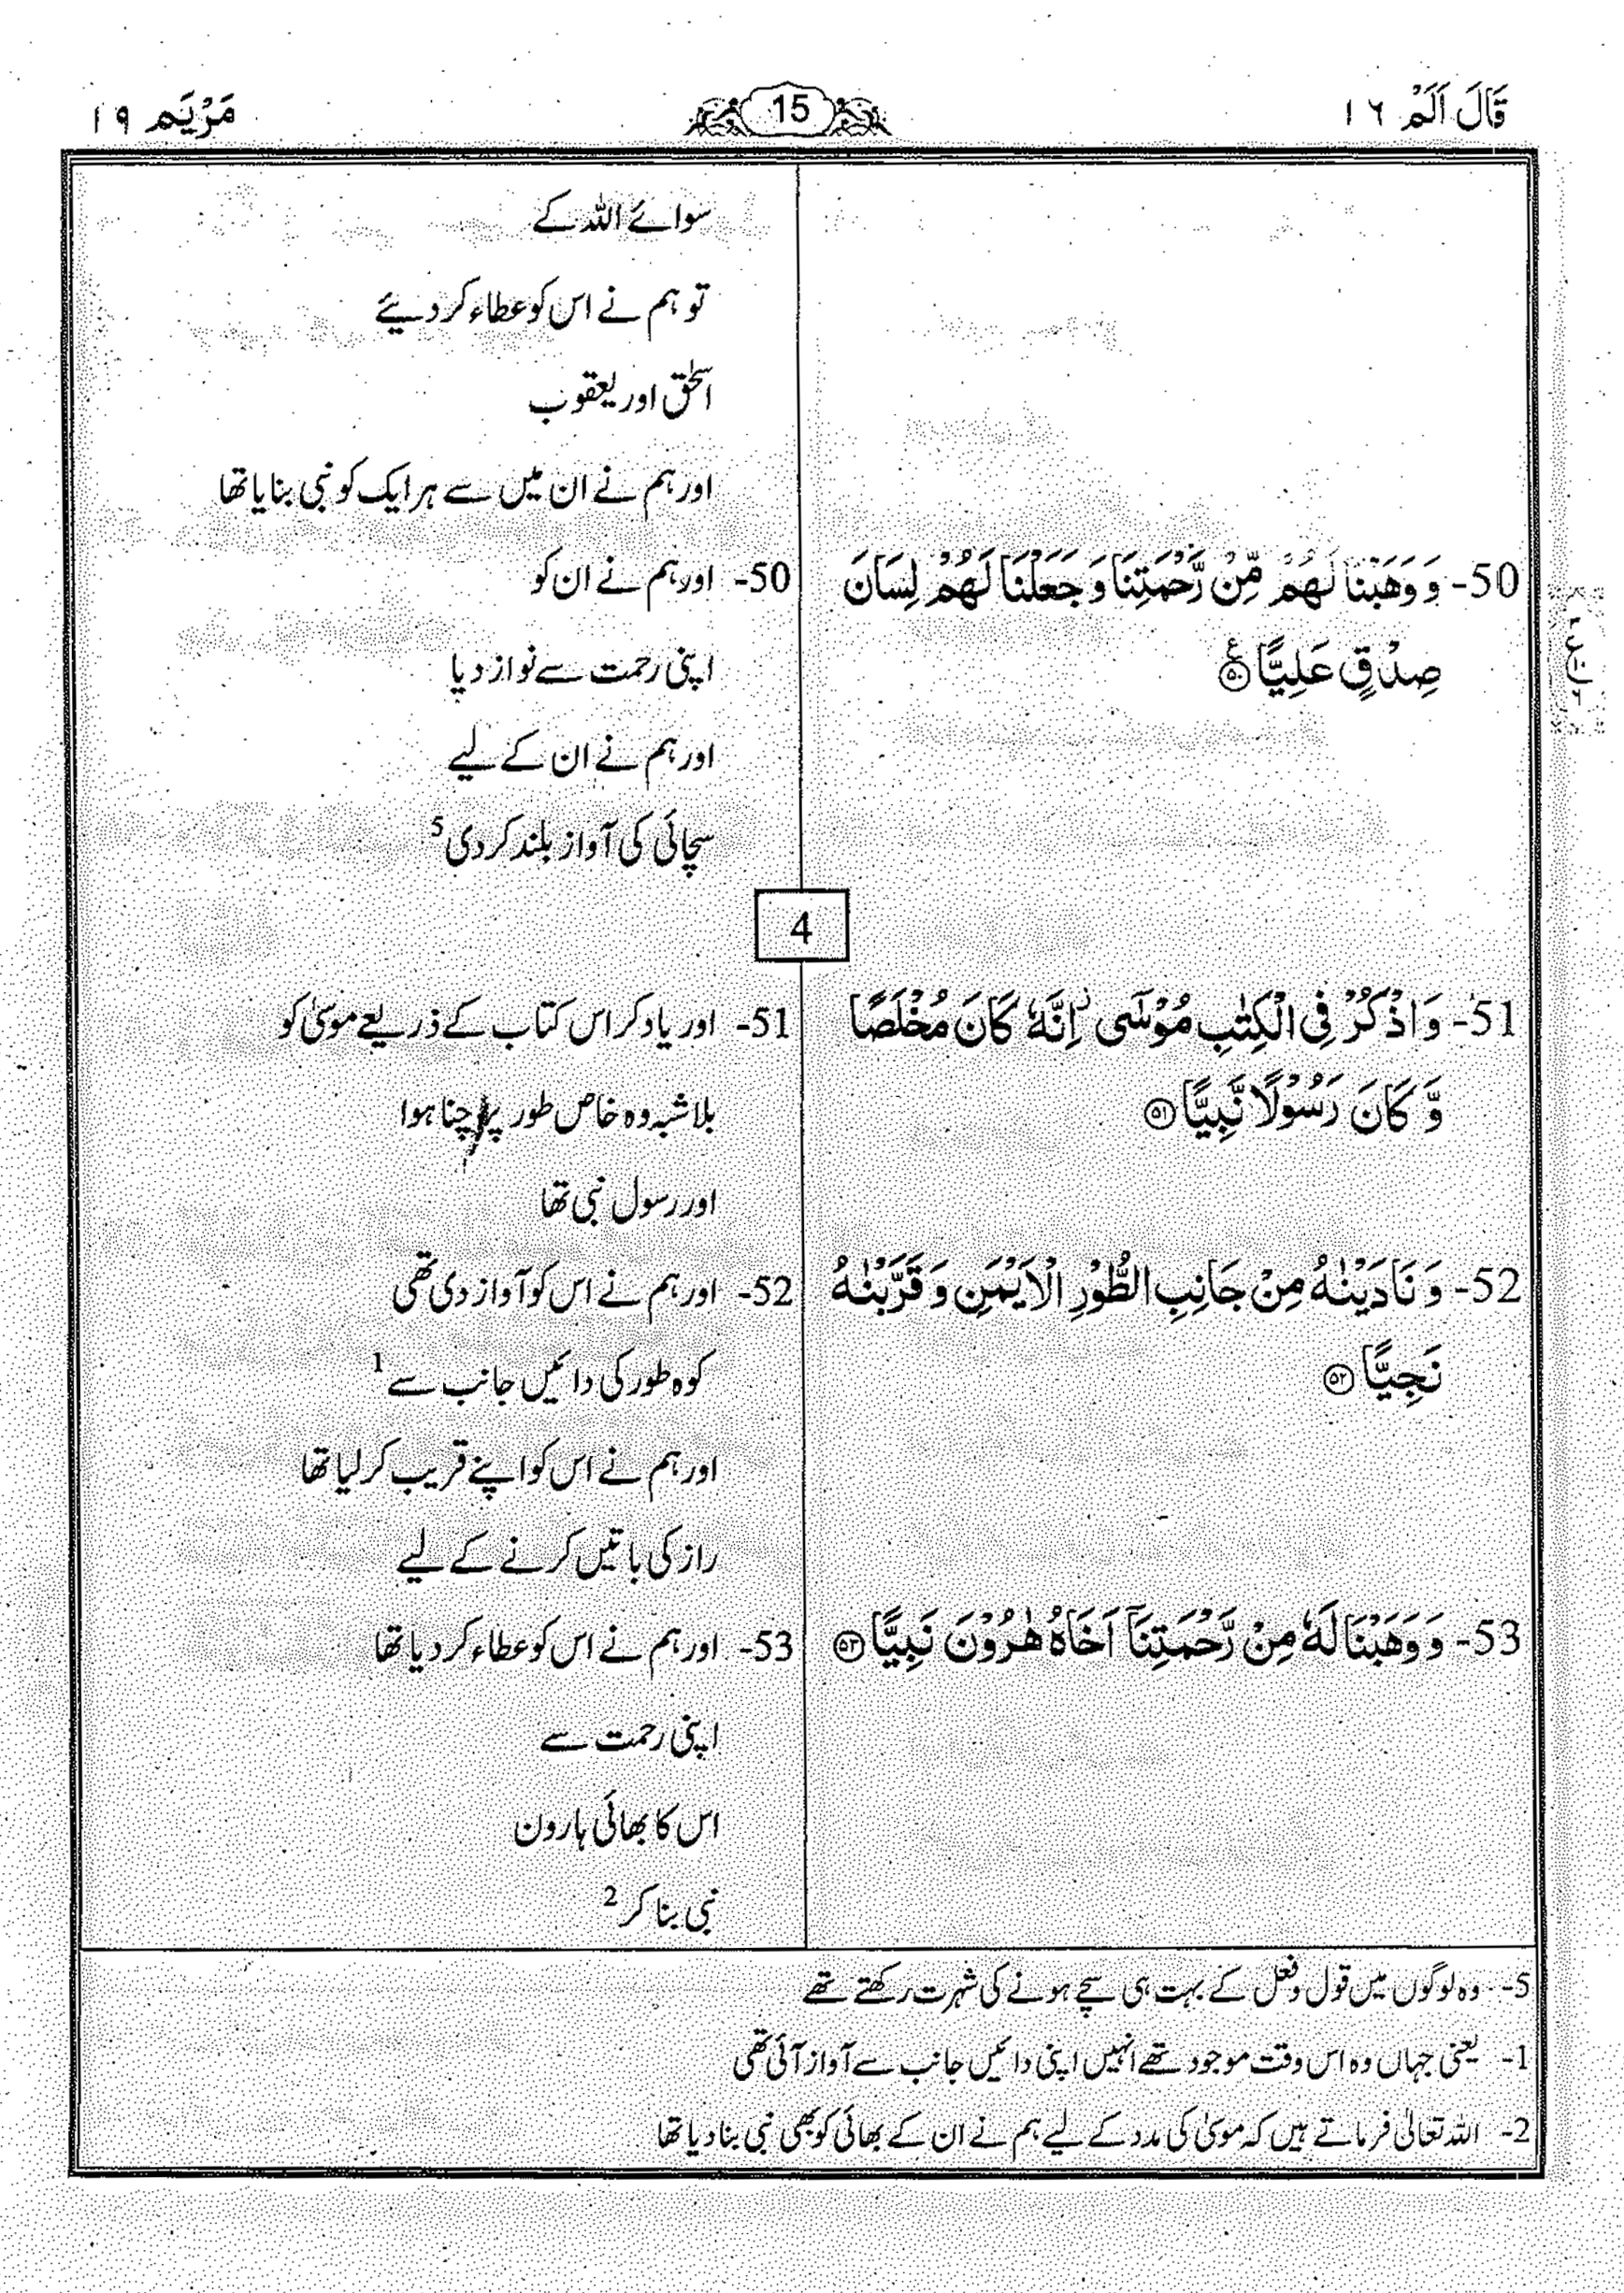 قَالَ اَلَمْ ١٦
15
مَرْيَم ١٩
سوائے اللہ کے
تو ہم نے اس کو عطاء کر دیئے
اسحٰق اور یعقوب
اور ہم نے ان میں سے ہر ایک کو نبی بنایا تھا
50- وَ وَهَبْنَا لَهُمْ مِّنْ رَّحْمَتِنَا وَ جَعَلْنَا لَهُمْ لِسَانَ
صِدْقٍ عَلِيًّا ﴿۵۰﴾ ع
50- اور ہم نے ان کو
اپنی رحمت سے نواز دیا
اور ہم نے ان کے لیے
سچائی کی آواز بلند کر دی 5
4
51- وَ اذْكُرْ فِى الْكِتٰبِ مُوْسٰٓى ز اِنَّهٗ كَانَ مُخْلَصًا
وَّ كَانَ رَسُوْلًا نَّبِيًّا ﴿۵۱﴾
51- اور یاد کر اس کتاب کے ذریعے موسیٰ کو
بلاشبہ وہ خاص طور پر چنا ہوا
اور رسول نبی تھا
52- وَ نَادَيْنٰهُ مِنْ جَانِبِ الطُّوْرِ الْاَيْمَنِ وَ قَرَّبْنٰهُ
نَجِيًّا ﴿۵۲﴾
52- اور ہم نے اس کو آواز دی تھی
کوہ طور کی دائیں جانب سے 1
اور ہم نے اس کو اپنے قریب کر لیا تھا
راز کی باتیں کرنے کے لیے
53- وَ وَهَبْنَا لَهٗ مِنْ رَّحْمَتِنَآ اَخَاهُ هٰرُوْنَ نَبِيًّا ﴿۵۳﴾
53- اور ہم نے اس کو عطاء کر دیا تھا
اپنی رحمت سے
اس کا بھائی ہارون
نبی بنا کر 2
5- وہ لوگوں میں قول و فعل کے بہت ہی سچے ہونے کی شہرت رکھتے تھے
1- یعنی جہاں وہ اس وقت موجود تھے انہیں اپنی دائیں جانب سے آواز آئی تھی
2- اللہ تعالیٰ فرماتے ہیں کہ موسیٰ کی مدد کے لیے ہم نے ان کے بھائی کو بھی نبی بنا دیا تھا